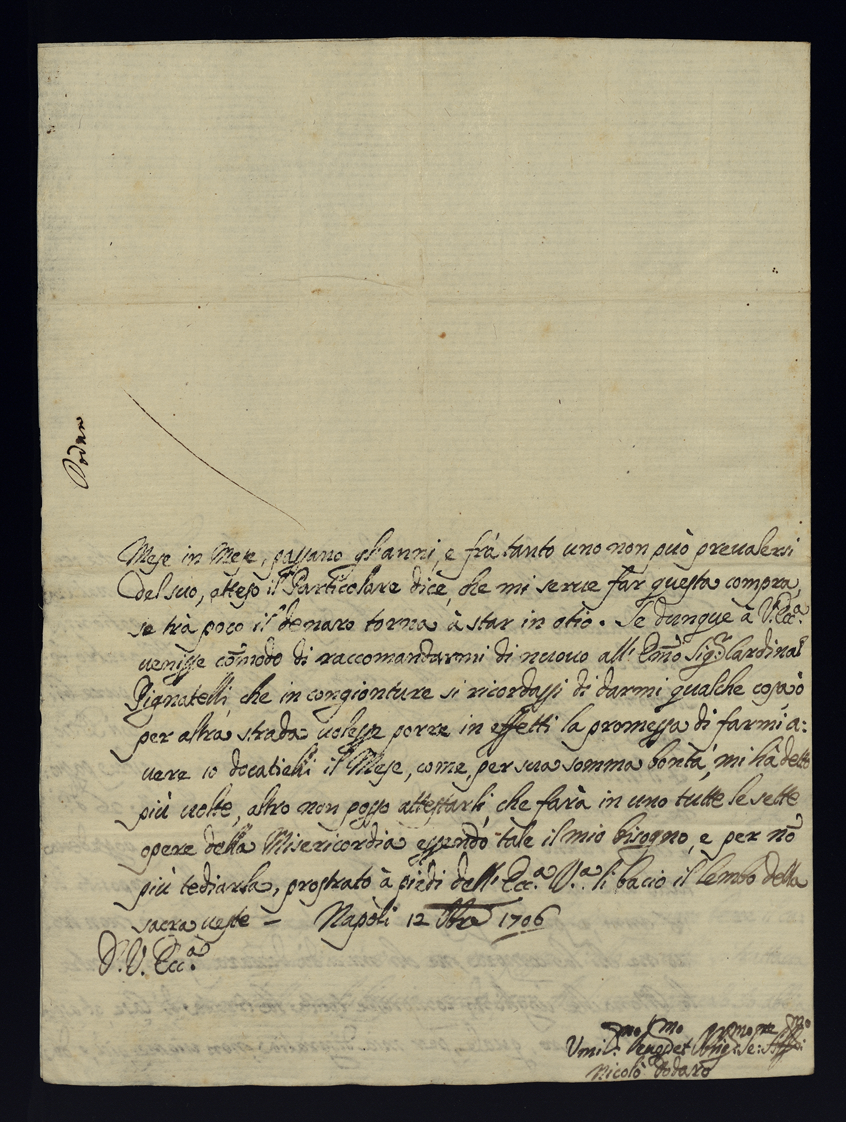 Dodaro
Mese in Mese, passano gl'anni, e frà tanto uno non può prevalersi
del suo, atteso il Particolare dice, che mi serve far questa compra,
se trà poco il denaro torna à star in otio. Se dunque à V. Ecc.ª
venisse com̃odo di raccomandarmi di nuovo all' Em̃o Sig.r Cardinal
Pignatelli, che in congionture si ricordassi di darmi qualche cosa ò
per altra strada volesse porre in effetti la promessa di farmi a:
vere 10 docatielli il Mese, come per sua somma bontà, mi hà detto
più volte, altro non posso attestarli che farà in uno tutte le sette
opere della Misericordia essendo tale il mio bisogno, e per nõ
più tediarla, prostrato à piedi dell' Ecc.ª V.ª li bacio il lembo della
sacra veste – Napoli 12 1706
D. V. Ecc.ª
Umil.mo
Nicolò Dodaro